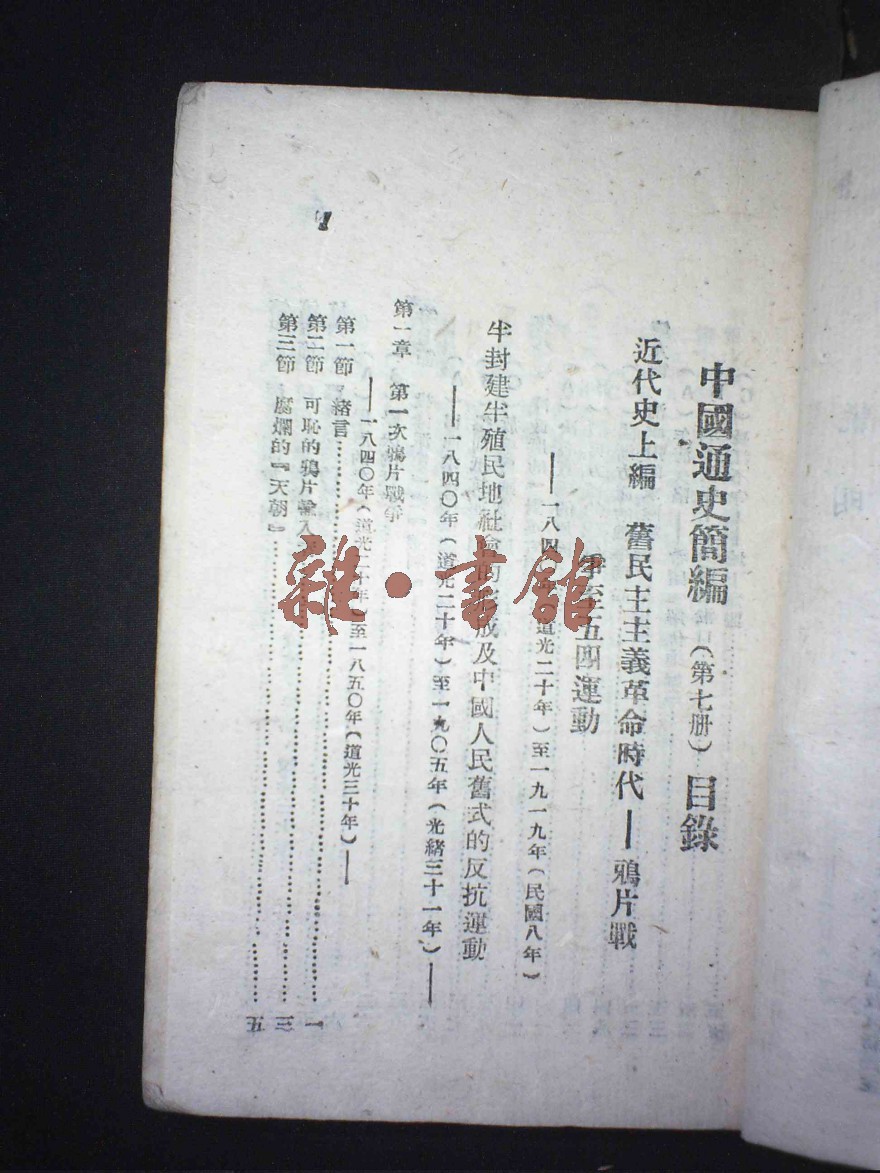 中國通史簡編（第七册）目錄
近代史上編　舊民主主義革命時代——鴉片戰
爭至五四運動
——一八四　道光二十年）至一九一九年（民國八年）
半封建半殖民地社會的　成及中國人民舊式的反抗運動
——一八四〇年（道光二十年）至一九〇五年（光緒三十一年）——
第一章　第一次鴉片戰爭
——一八四〇年（道光二十年）至一八五〇年（道光三十年）——
第一節　緒言……………一
第二節　可恥的鴉片輸入……………三
第三節　腐爛的『天朝』……………五
雜·書館